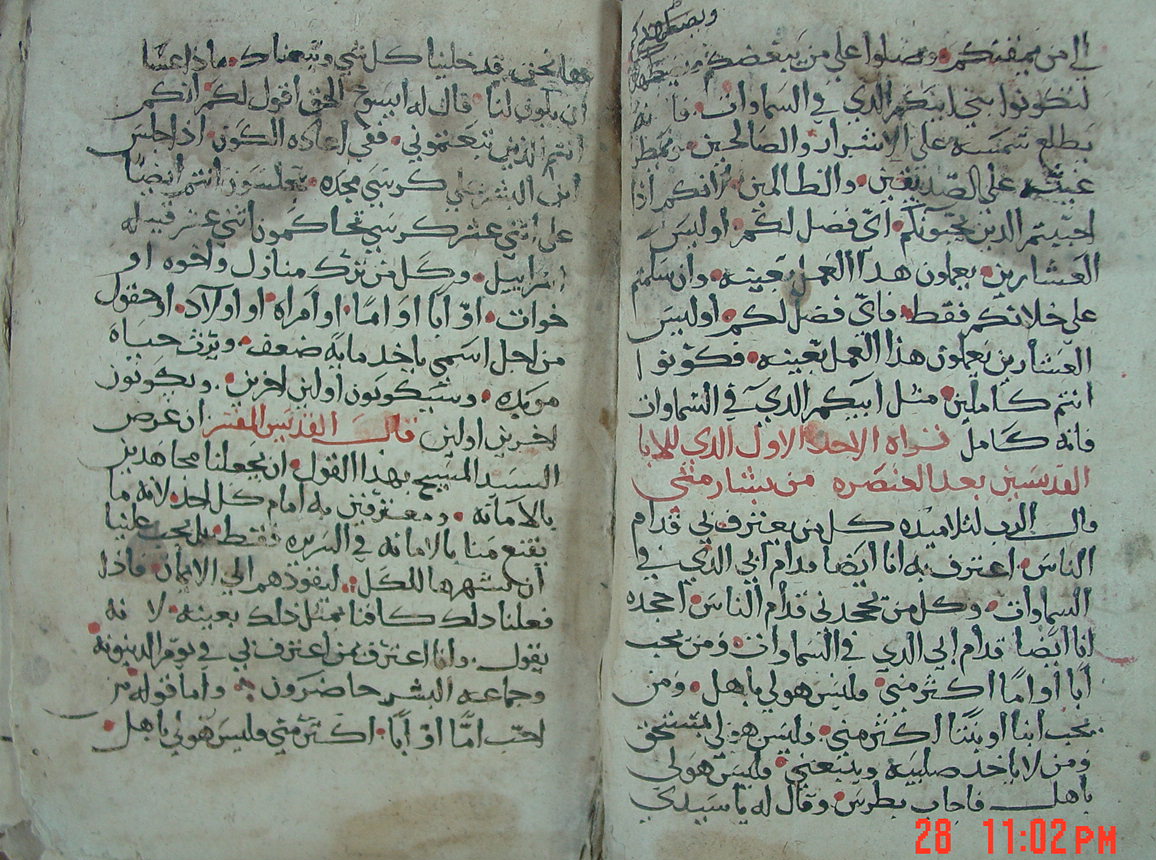 ويصطهدكم
الى من يمقتكم. وصلوا على من يبغضكم
لتكونوا بني ابيكم الدي في السماوات. فانه
يطلع شمسه على الاشرار والصالحين. ويمطر
غيثه على الصديقين. والظالمين. لانكم ادا
احببتم الدين يحبونكم. اي فضل لكم. اوليس
العشارين. يعملون هدا العمل بعينه. وان سلمتم
على خلانكم فقط. فاي فضل لكم. اوليس
العشارين يعملون هذا العمل بعينه. فكونوا
انتم كاملين. مثل ابيكم الدي في السماوات
فانه كامل قراه الاحد الاول الدي للابا
القديسين بعد العنصره من بشاره متى
قال الرب لتلاميده كل من يعترف بي قدام
الناس. اعترف به انا ايضا قدام ابي الدي في
السماوات. وكل من يجحدني قدام الناس. اجحده
انا ايضا قدام ابي الدي في السماوات. ومن يحب
أبا أو امًا اكثر مني. فليس هو لي باهل. ومن
يحب ابنا او بنتا اكثر مني. فليس هو لي بمستحق
ومن لا ياخد صليبه ويتبعني. فليس هو لي
باهل فاجاب بطرس. وقال له يا سيدي
ها نحن قد خلينا كل شي وتبعناك. ماذا عسا
ان يكون لنا. قال له ايسوع الحق اقول لكم انكم
انتم الدين تبعتموني. ففي اعاده الكون. ادا جلس
ابن البشر على كرسي مجده. تجلسون انتم ايضًا
على اثني عشر كرسي تحاكمون اثني عشر قبيله
اسراييل. وكل من ترك منازل واخوه او
خوات. اوْ أبًا اوْ امًا. او امراه. او اولاد. او حقول
من اجل اسمي ياخد مايه ضعف. ويرث حياه
موبده. وسيكونون اولين اخرين. ويكونون
اخرين اولين قال القديس المفسر ان غرض
السيد المسيح بهدا القول. ان يجعلنا مجاهدين
بالامانه. ومعترفين به امام كل احد. لانه ما
يقنع منا بالامانه في السريره فقط. بل يجب علينا
ان نشهرها للكل. ليقودهم الى الايمان. فاذا
فعلنا دلك كافنا بمثل دلك بعينه. لانه
يقول. وانا اعترف بمن اعترف بي في يوم الدينونه
وجماعه البشر حاضرون. واما قوله من
احب امًّا اوْ أبًا. اكثر مني فليس هو لي باهل.
28 11:02 PM